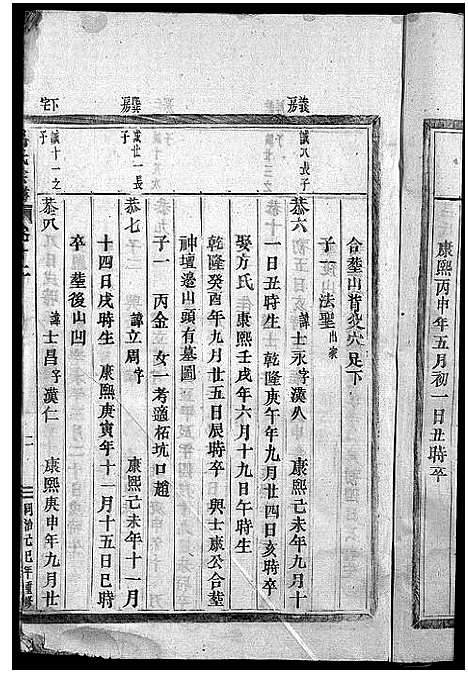 康熙丙申年五月初一日丑時卒
合塟山背
穴足下
子一 法聖出家
義房
誠八長子
恭六 諱士永字漢八 康熙己未年九月十
一日丑時生 乾隆庚午年九月廿四日亥時卒
娶方氏 生康熙壬戌年六月十九日午時生
乾隆癸酉年九月廿五日辰時卒 與士康公合塟
神壇邊山頭有墓圖
子一 丙金 女一考適柘坑口趙
房
誠廿一長子
恭七 諱立周字 康熙己未年十一月
十四日戌時生 康熙庚寅年十一月十五日巳時
卒 塟後山凹
下宅
誠十一之子
恭八 諱士昌字漢仁 康熙庚申年九月廿
二
同治己巳年重修